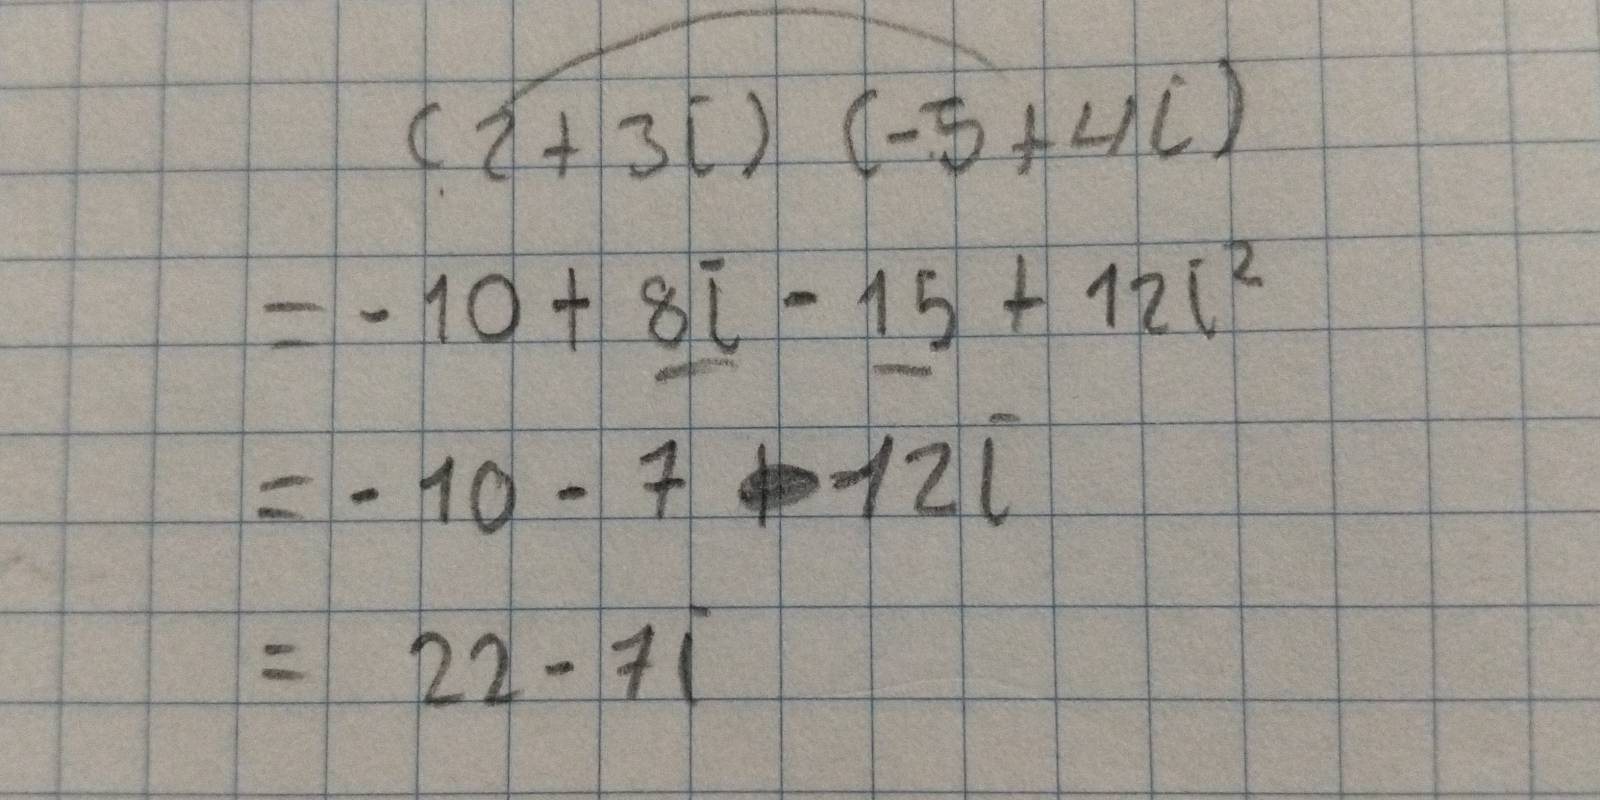 (2+3i) (-5+4i)
=-10+8i-15+12i²
=-10-7-12i
= 22-7i